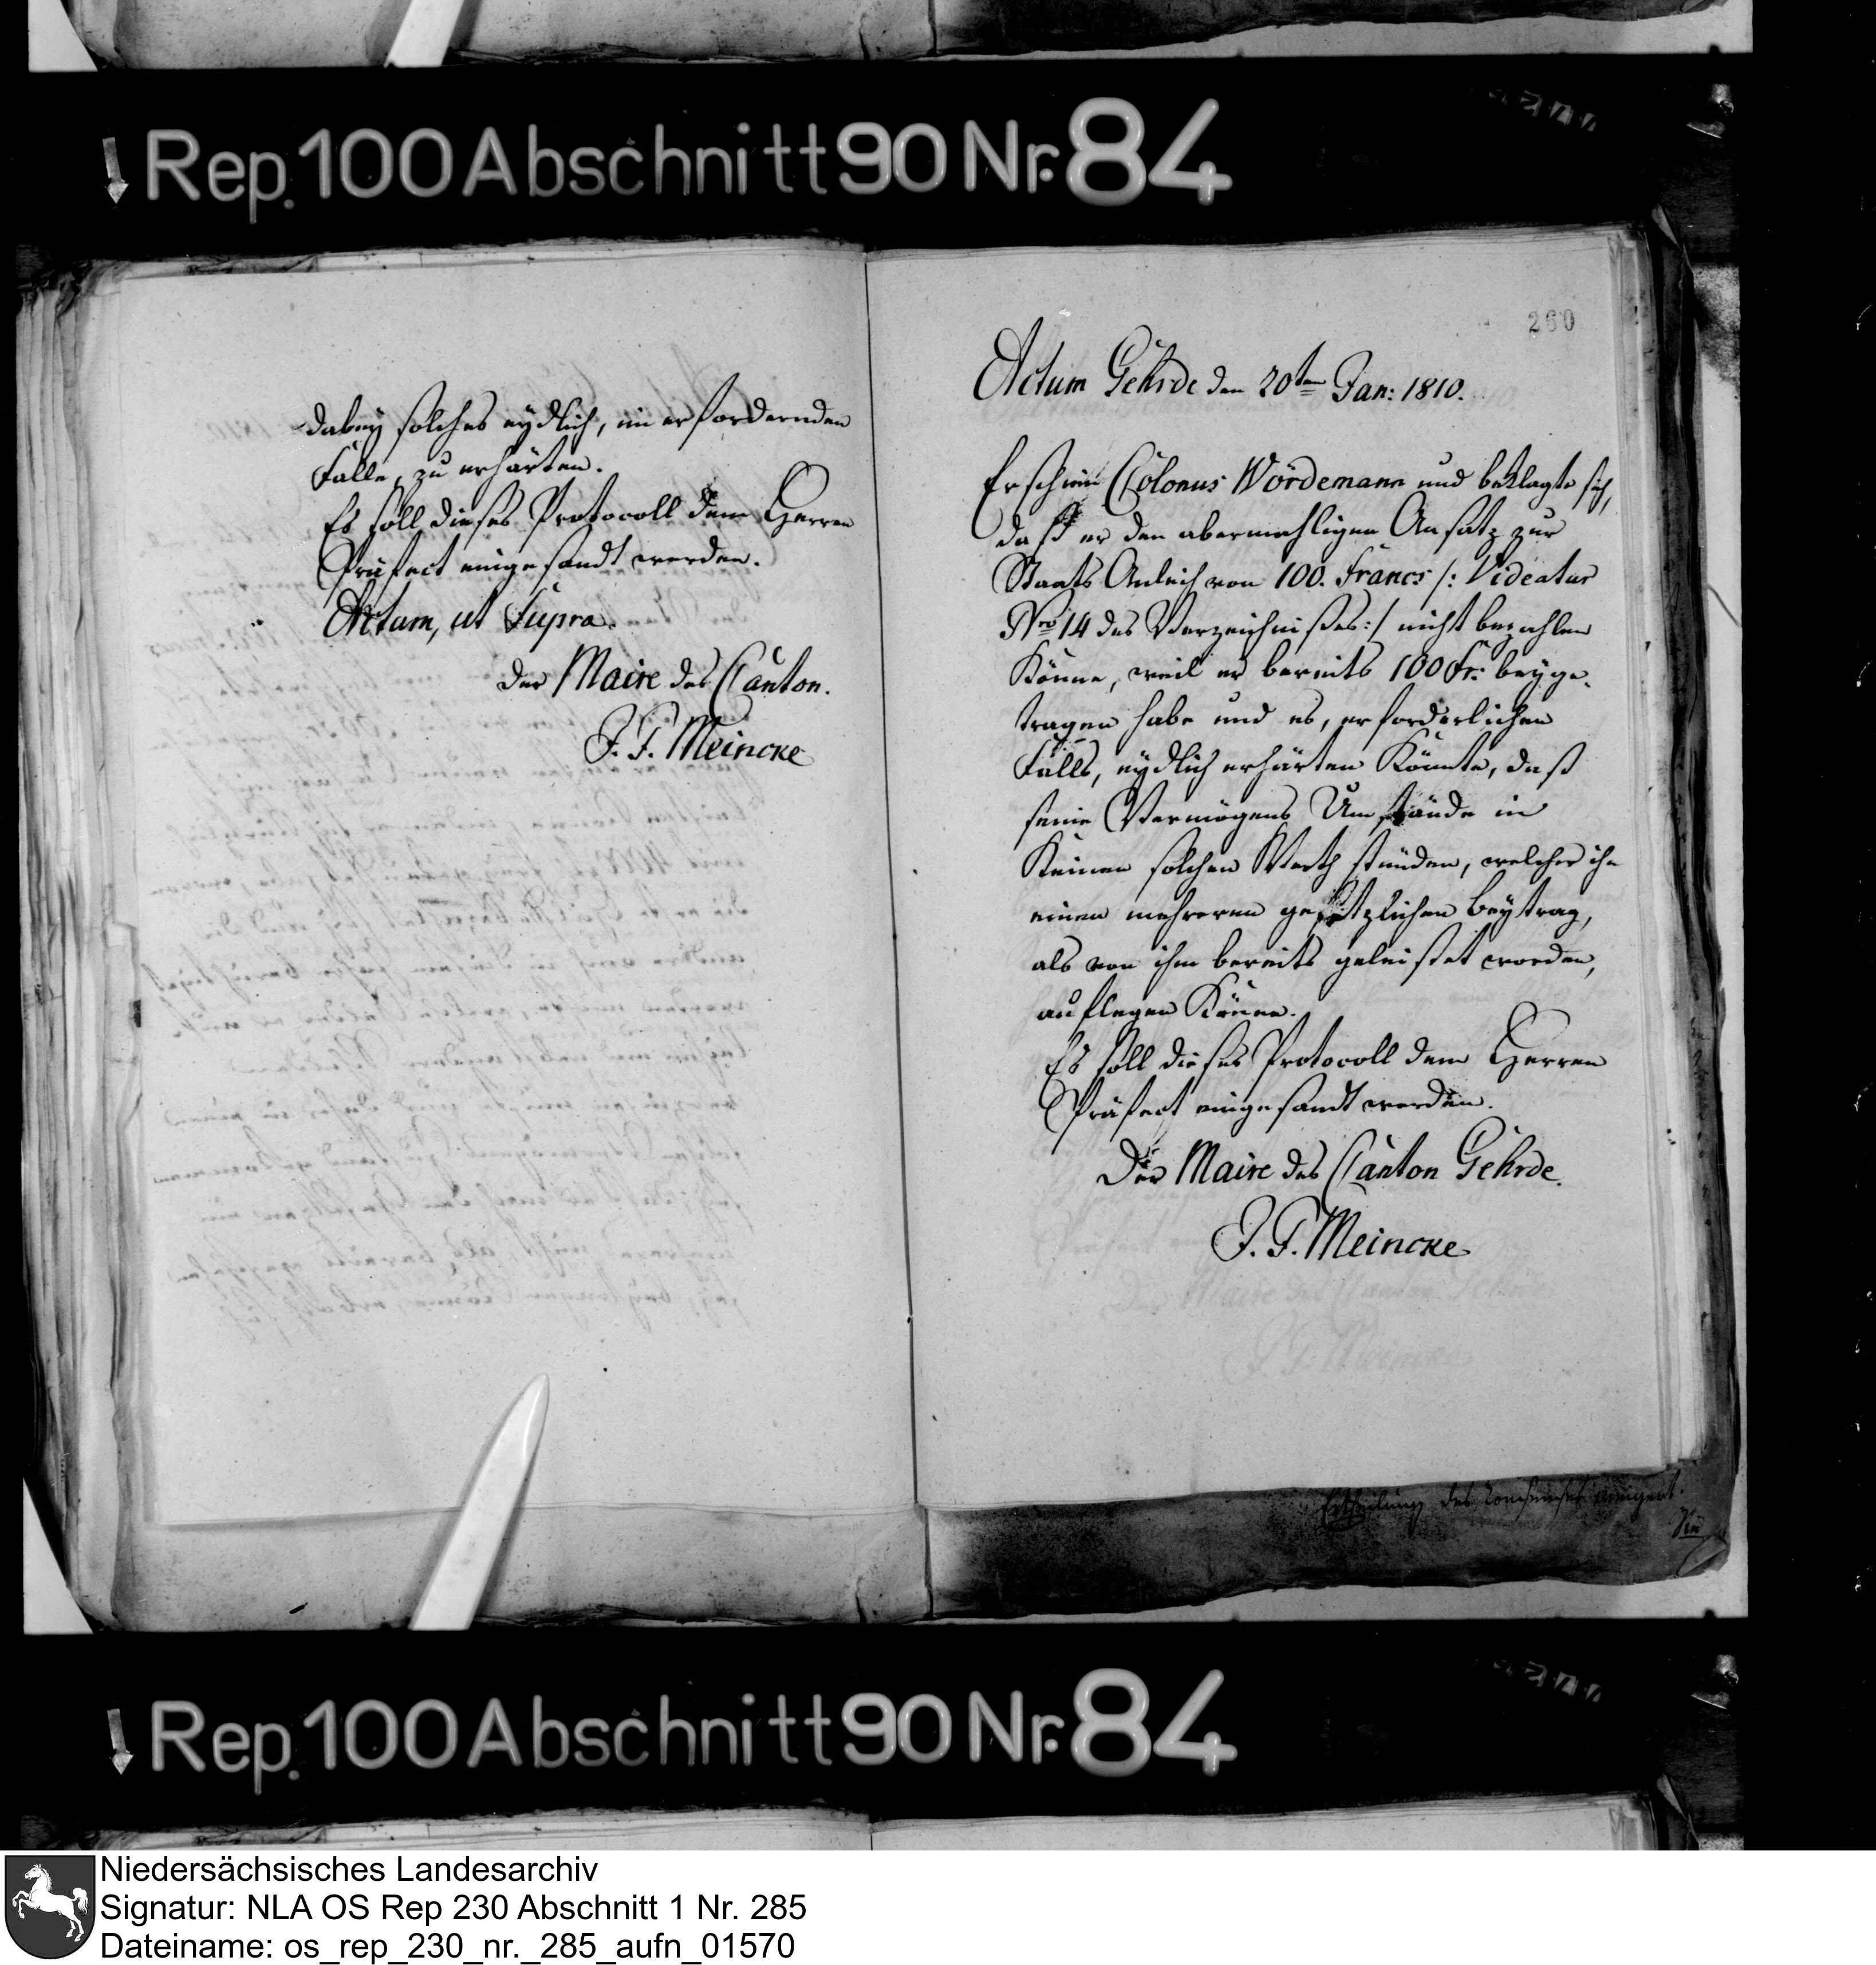 Rep. 100 Abschnitt 90 Nr. 84
dabey solches eydlich, im erfordernden
Falle, zu erhärten.
Es soll dieses Protocoll dem Herren
Präfect eingesandt werden.
Actum, ut Supra.
Der Maire des Canton.
J. F. Meincke
260
Actum Gehrde den 20ten Jan: 1810.
Erschien Colonus Wördemann und beklagte sich,
daß er den abermahligen Ansatz zur
Staats Anleih von 100. Francs /: Videatur
Nro 14 des Verzeichnißes :/ nicht bezahlen
Könne, weil er bereits 100 Fr: beyge-
tragen habe und es, erforderlichen
Falls, eydlich erhärten Könnte, daß
seine Vermögens Umstände in
Keinen solchen Werth stünden, welcher ihn
einen mehreren gesetzlichen Beytrag,
als von ihm bereits geleistet worden,
auflegen Könne.
Es soll dieses Protocoll dem Herren
Präfect eingesandt werden.
Der Maire des Canton Gehrde.
J. F. Meincke
Ertheilung des Consenses
Rep. 100 Abschnitt 90 Nr. 84
Niedersächsisches Landesarchiv
Signatur: NLA OS Rep 230 Abschnitt 1 Nr. 285
Dateiname: os_rep_230_nr._285_aufn_01570